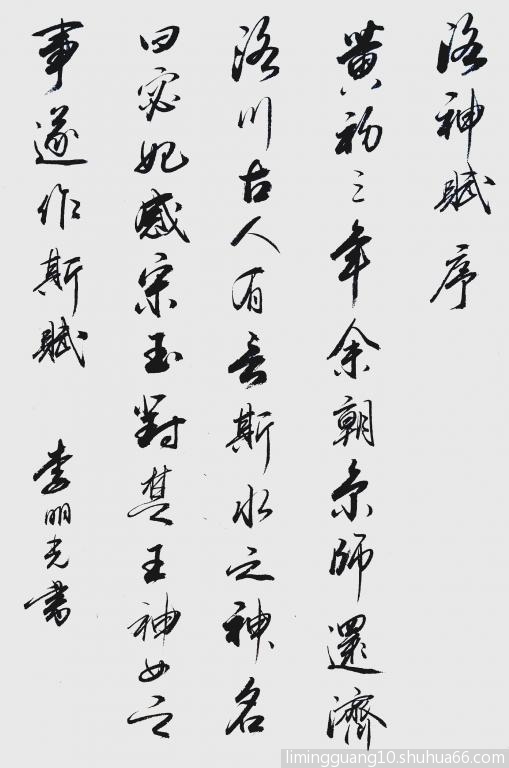 洛神賦序
黃初三年余朝京師還濟
洛川古人有言斯水之神名
曰宓妃感宋玉對楚王神女之
事遂作斯賦
李明光書
limingguang10.shuhua66.com